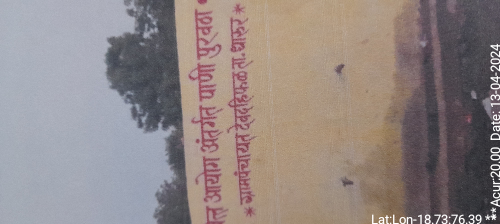 त आयोग अंतर्गत पाणी पुरवठा
* ग्रामपंचायत देवदहिफळ ता. धारूर *
Lat:Lon-18.73:76.39
**Acur:20.00 Date: 13-04-2024